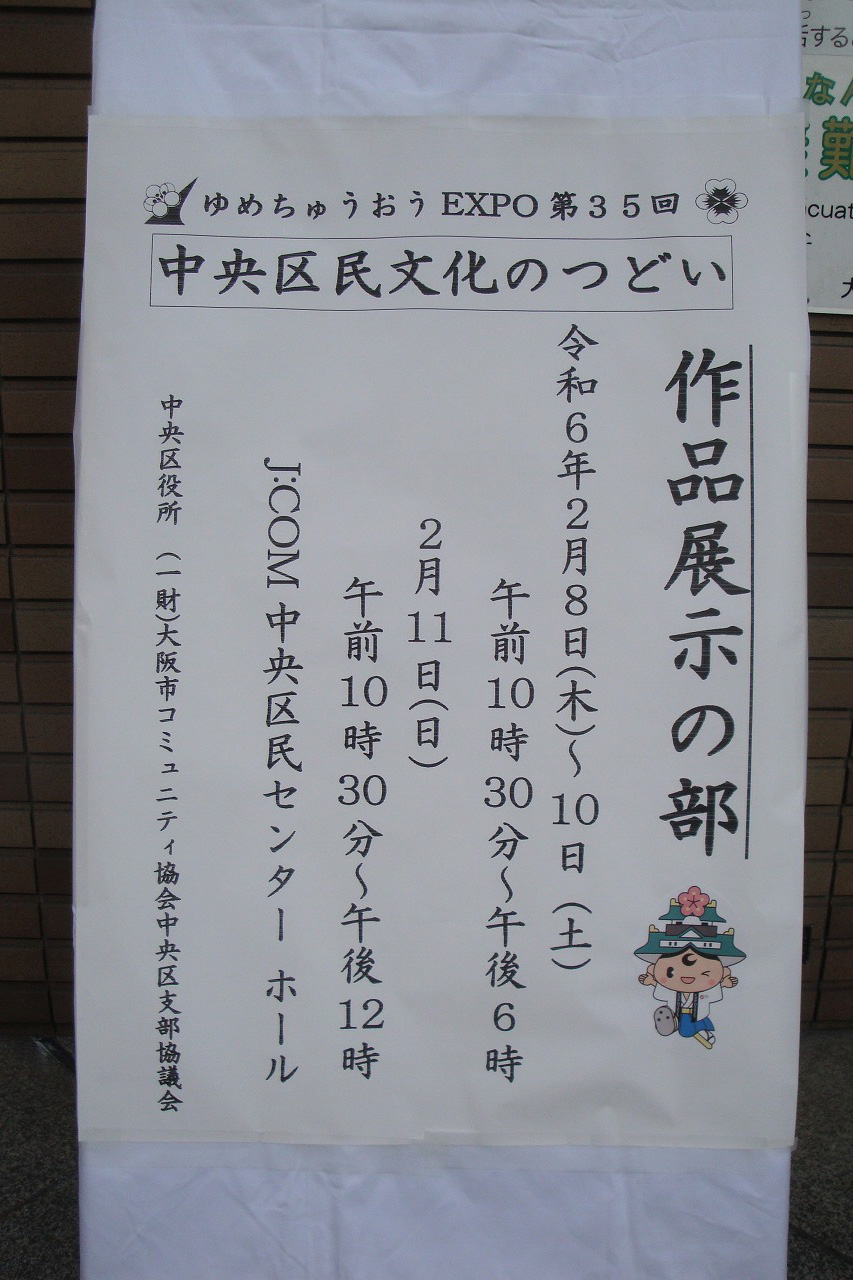 ゆめちゅうおうEXPO第35回
中央区民文化のつどい
作品展示の部
令和6年2月8日(木)～10日(土)
午前10時30分～午後6時
2月11日(日)
午前10時30分～午後12時
J:COM中央区民センター ホール
中央区役所 (一財)大阪市コミュニティ協会中央区支部協議会